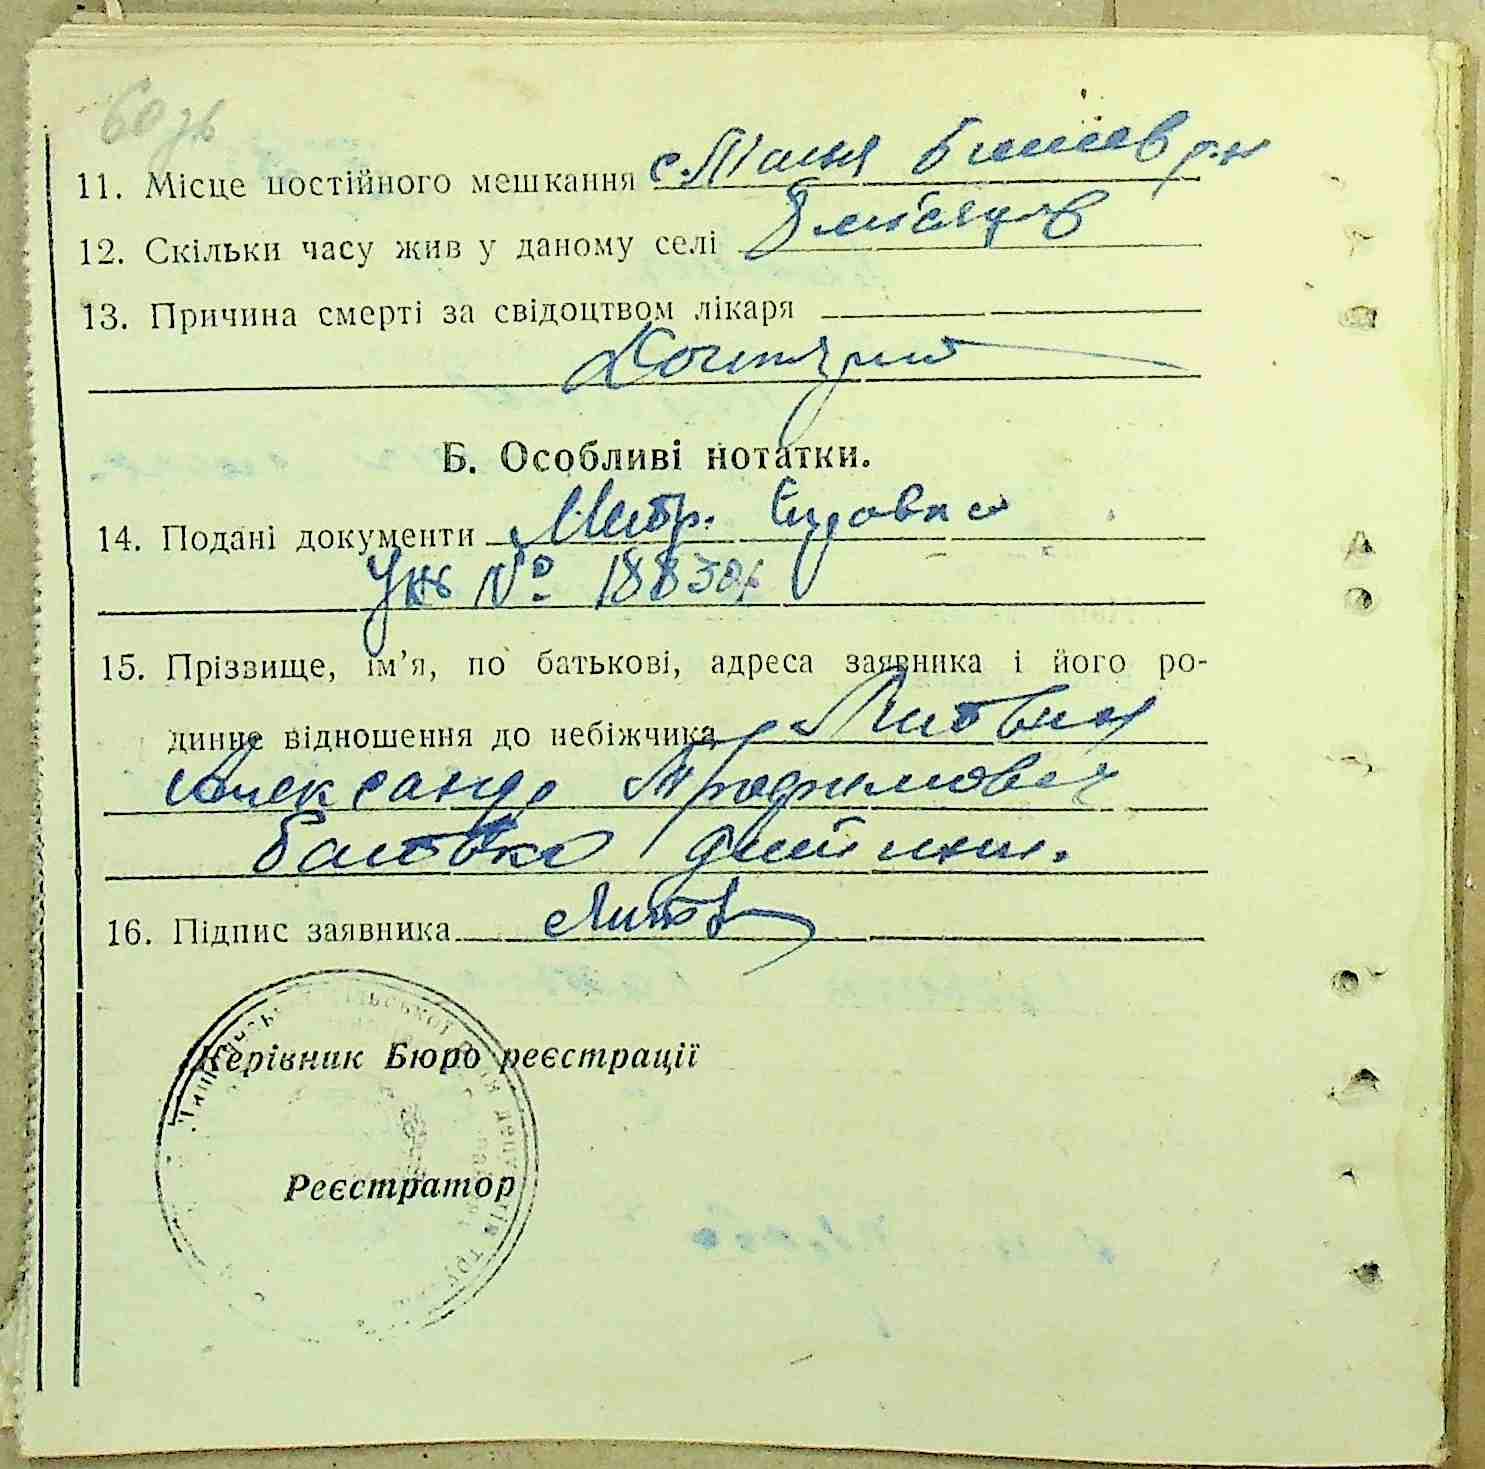 60 зв
11. Місце постійного мешкання с.
12. Скільки часу жив у даному селі 8 місяців
13. Причина смерті за свідоцтвом лікаря
Б. Особливі нотатки.
14. Подані документи Метр.
№ 18830
15. Прізвище, ім'я, по батькові, адреса заявника і його ро-
динне відношення до небіжчика Литвин
Александр Трофимович
батько
16. Підпис заявника Литв
Керівник Бюро реєстрації
Реєстратор